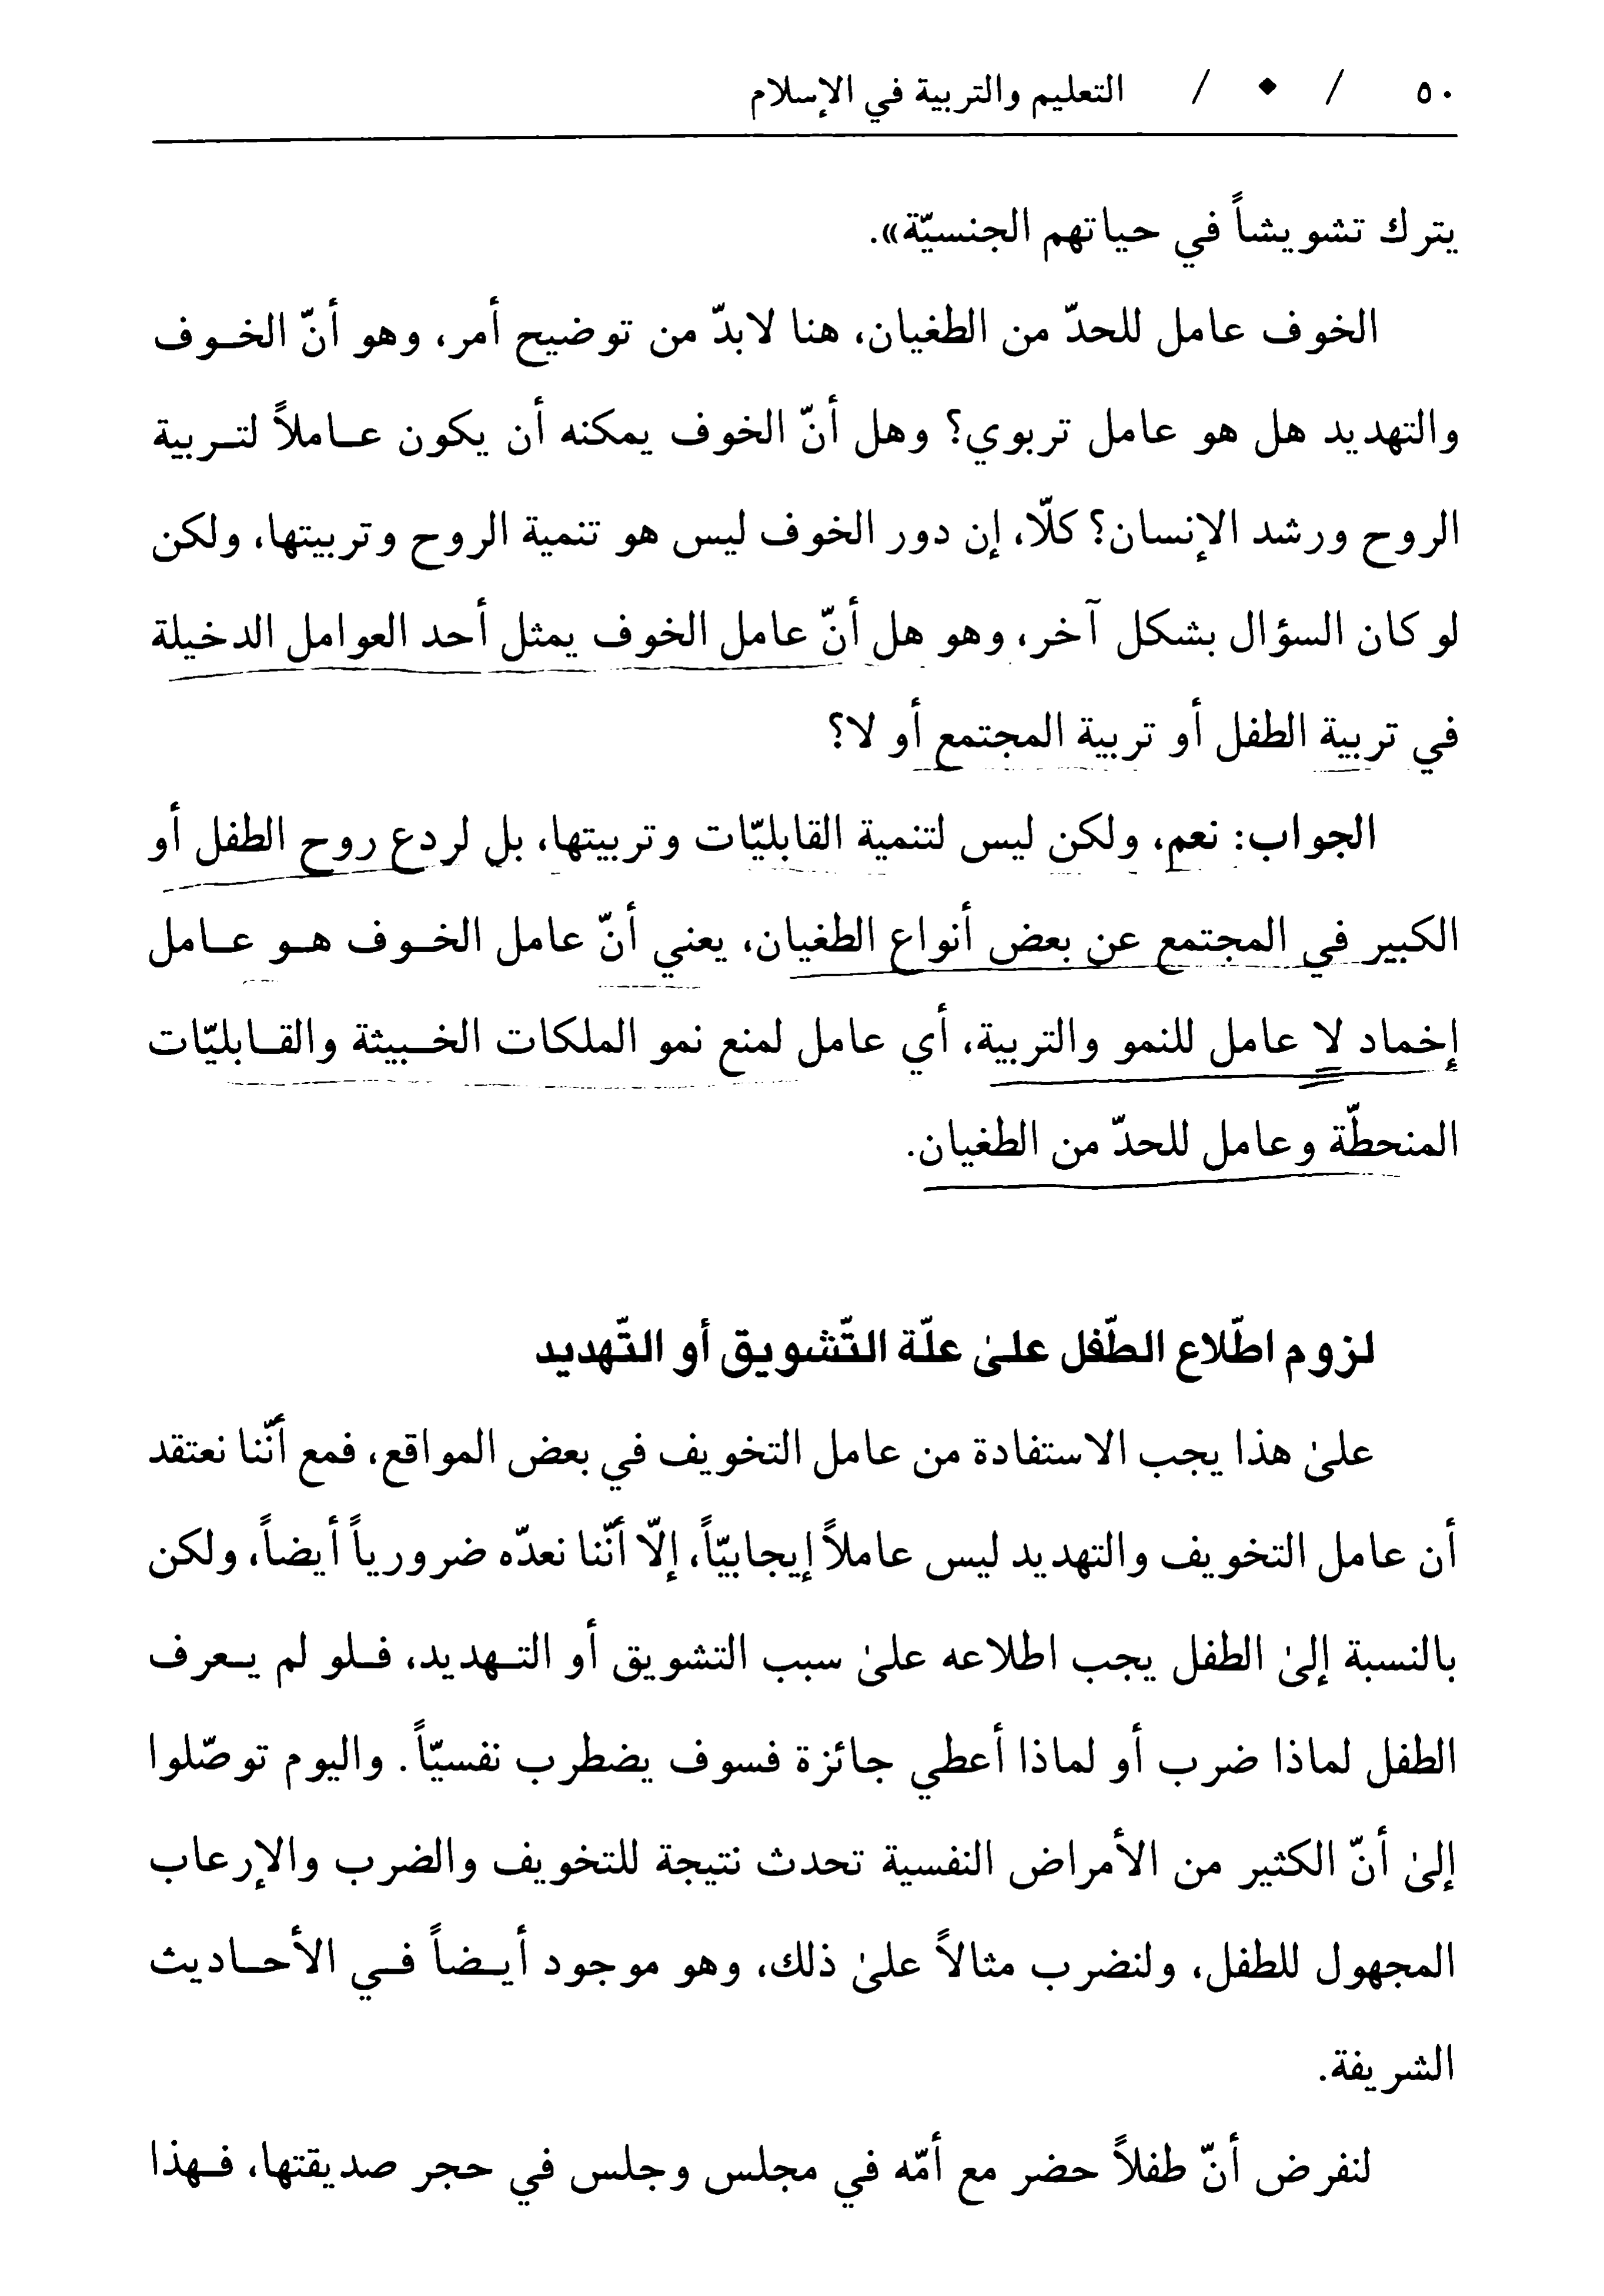 ٥٠ / ◆ / التعليم والتربية في الإسلام
يترك تشويشاً في حياتهم الجنسيّة».
الخوف عامل للحدّ من الطغيان، هنا لابدّ من توضيح أمر، وهو أنّ الخـوف
والتهديد هل هو عامل تربوي؟ وهل أنّ الخوف يمكنه أن يكون عـاملاً لتـربية
الروح ورشد الإنسان؟ كلّا، إن دور الخوف ليس هو تنمية الروح وتربيتها، ولكن
لو كان السؤال بشكل آخر، وهو هل أنّ عامل الخوف يمثل أحد العوامل الدخيلة
في تربية الطفل أو تربية المجتمع أو لا؟
الجواب: نعم، ولكن ليس لتنمية القابليّات وتربيتها، بل لردع روح الطفل أو
الكبير في المجتمع عن بعض أنواع الطغيان، يعني أنّ عامل الخـوف هـو عـامل
إخماد لا عامل للنمو والتربية، أي عامل لمنع نمو الملكات الخـبيثة والقـابليّات
المنحطّة وعامل للحدّ من الطغيان.
لزوم اطّلاع الطّفل علىٰ علّة التّشويق أو التّهديد
علىٰ هذا يجب الاستفادة من عامل التخويف في بعض المواقع، فمع أنّنا نعتقد
أن عامل التخويف والتهديد ليس عاملاً إيجابيّاً، إلّا أنّنا نعدّه ضرورياً أيضاً، ولكن
بالنسبة إلىٰ الطفل يجب اطلاعه علىٰ سبب التشويق أو التـهديد، فـلو لم يـعرف
الطفل لماذا ضرب أو لماذا أعطي جائزة فسوف يضطرب نفسيّاً. واليوم توصّلوا
إلىٰ أنّ الكثير من الأمراض النفسية تحدث نتيجة للتخويف والضرب والإرعاب
المجهول للطفل، ولنضرب مثالاً علىٰ ذلك، وهو موجود أيـضاً فـي الأحـاديث
الشريفة.
لنفرض أنّ طفلاً حضر مع أمّه في مجلس وجلس في حجر صديقتها، فـهذا